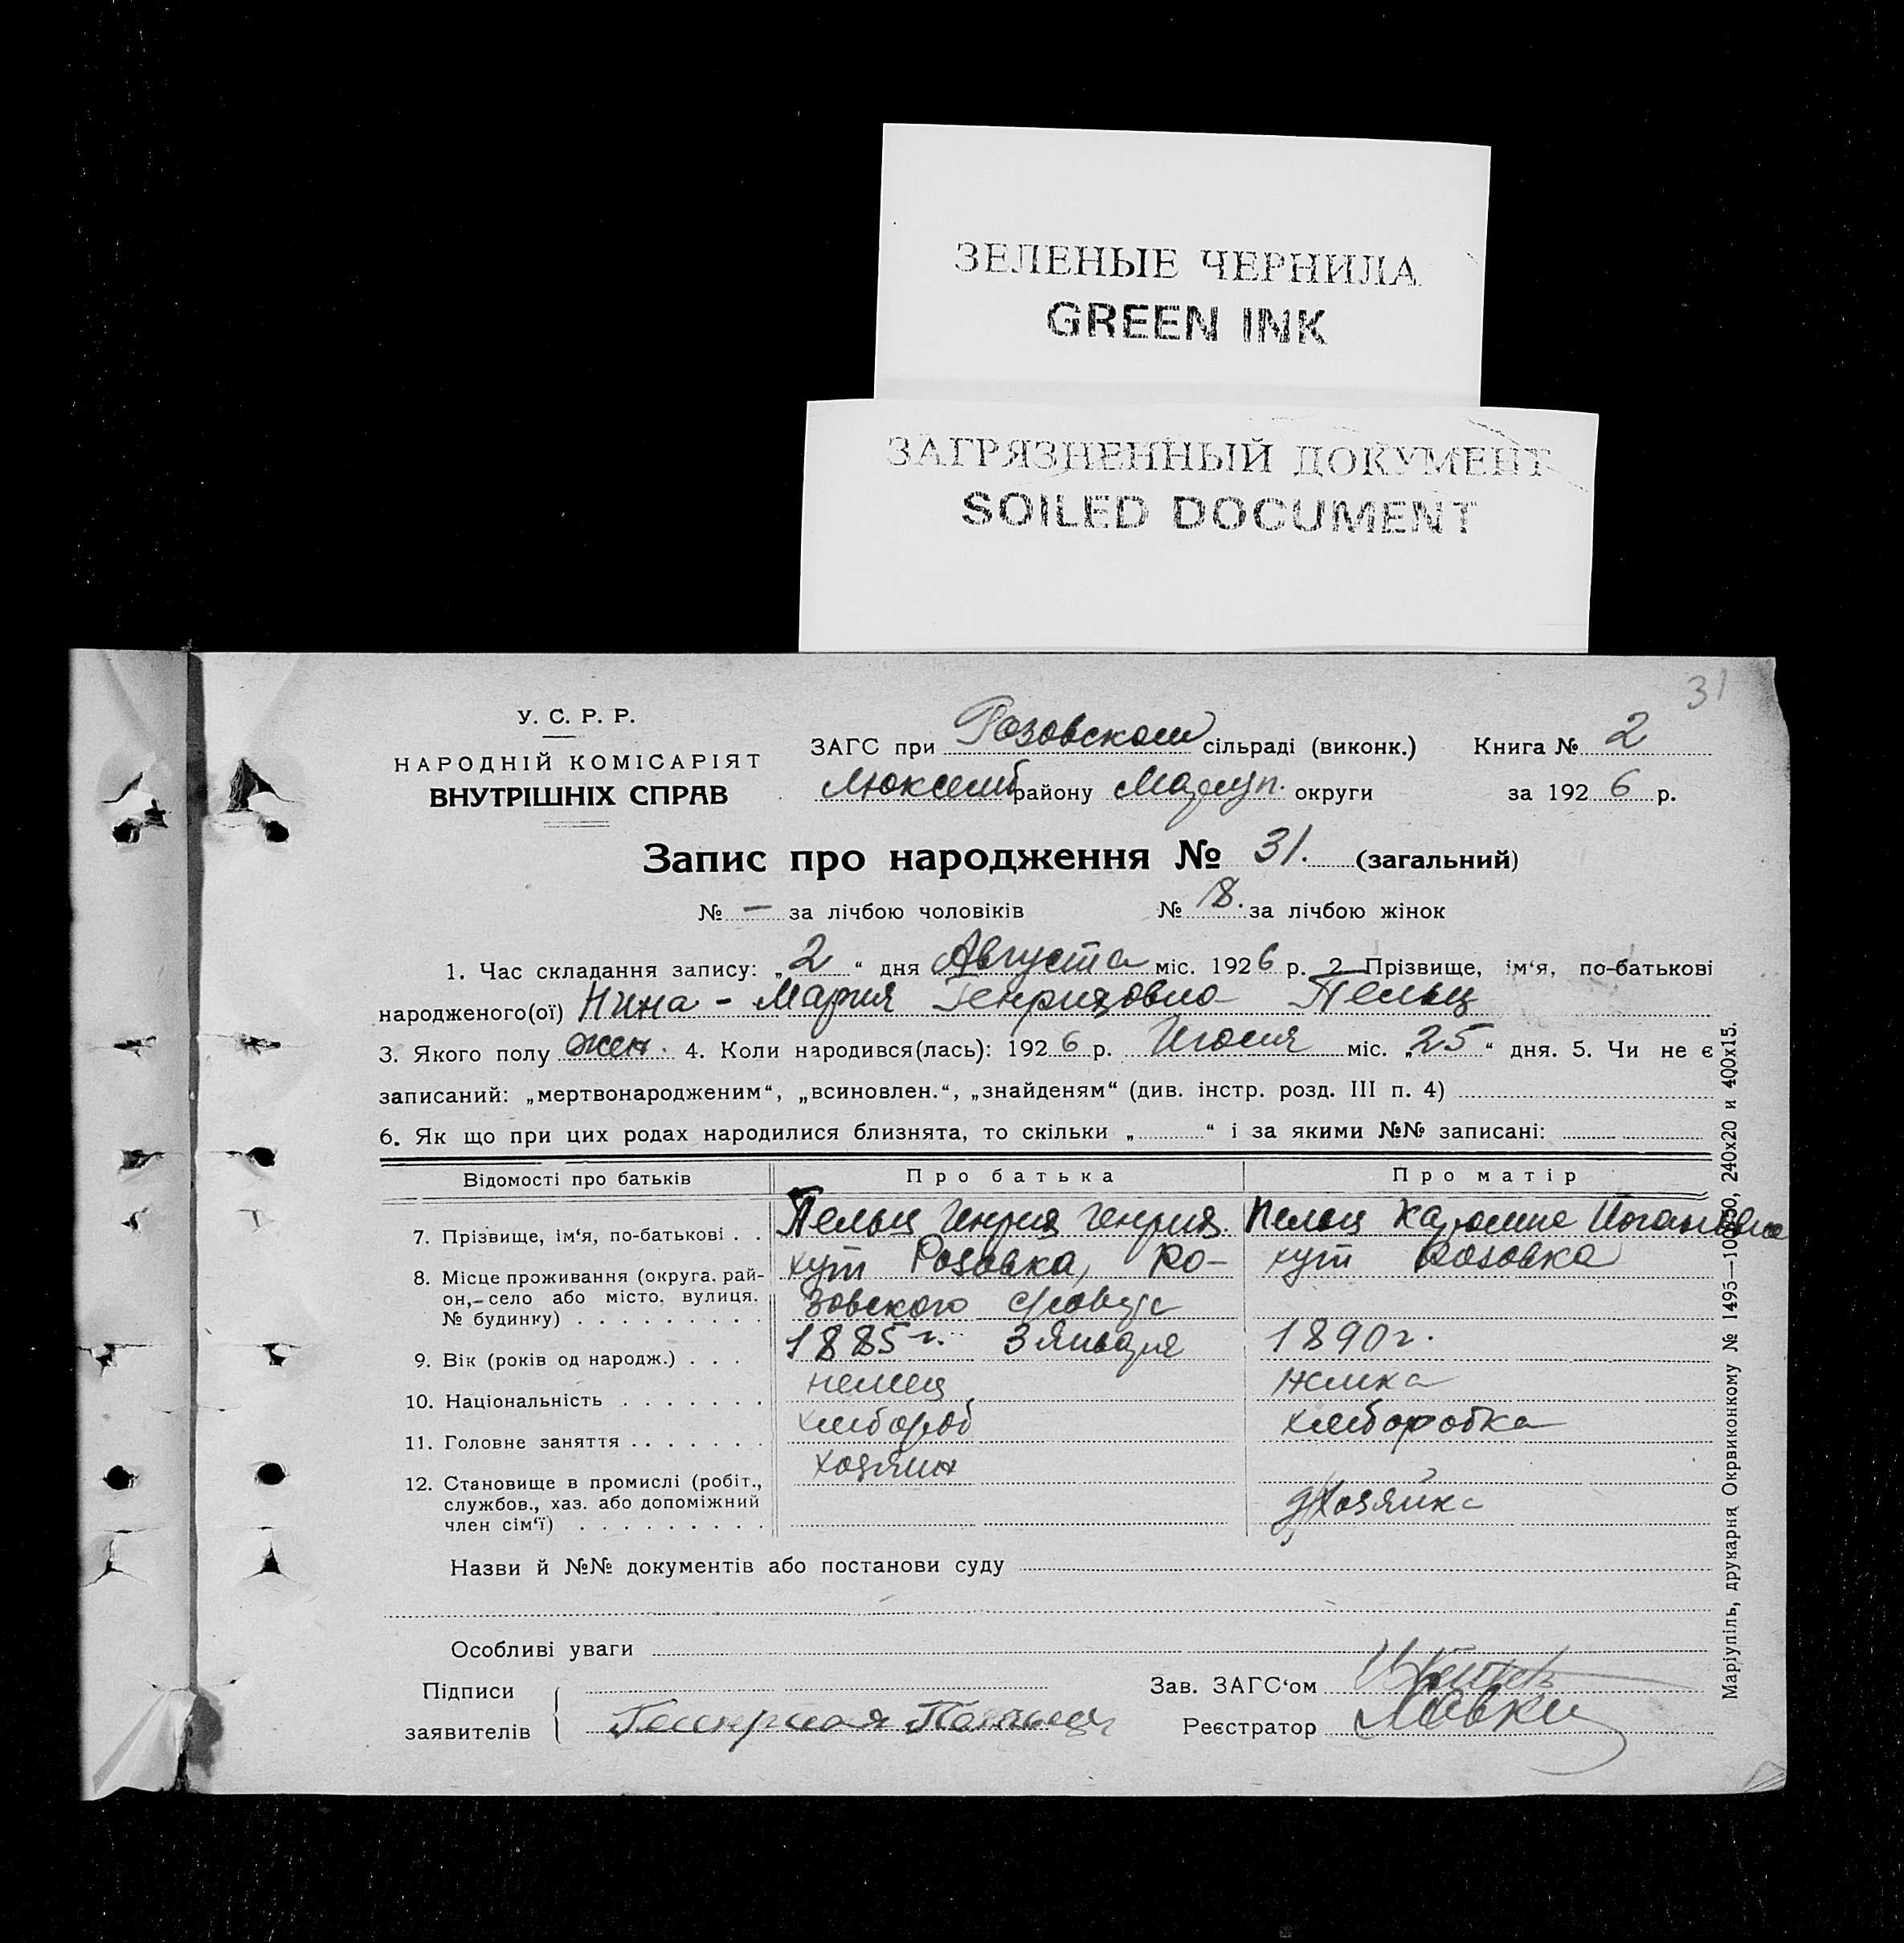 ЗЕЛЕНЫЕ ЧЕРНИЛА
GREEN INK
ЗАГРЯЗНЕННЫЙ ДОКУМЕНТ
SOILED DOCUMENT
31
У. С. Р. Р.
НАРОДНІЙ КОМІСАРІЯТ
ВНУТРІШНІХ СПРАВ
ЗАГС при Розовском сільраді (виконк.) Книга № 2
Люксемб району Мариуп. округи за 1926 р.
Запис про народження № 31. (загальний)
№ — за лічбою чоловіків № 18. за лічбою жінок
1. Час складання запису: „2“ дня Августа міс. 1926 р. 2 Прізвище, ім‘я, по-батькові
народженого(ої) Нина - Мария Генриховна Пельц
3. Якого полу жен. 4. Коли народився(лась): 1926 р. Июля міс. „25“ дня. 5. Чи не є
записаний: „мертвонародженим“, „всиновлен.“, „знайденям“ (див. інстр. розд. III п. 4)
6. Як що при цих родах народилися близнята, то скільки „ “ і за якими №№ записані:
Відомості про батьків Про батька Про матір
7. Прізвище, ім‘я, по-батькові . . Пельц Генрих Генрих. Пельц Каролина Иогановна
8. Місце проживання (округа, рай- хут Розовка, Ро- хут Розовка
он,–село або місто, вулиця, зовского
№ будинку)
9. Вік (років од народж.) . . . 1885 г. 3 Января 1890 г.
10. Національність немец немка
11. Головне заняття хлебороб хлеборобка
12. Становище в промислі (робіт., хозяин
службов., хаз. або допоміжний хозяйка
член сім‘ї)
Назви й №№ документів або постанови суду
Особливі уваги
Підписи Зав. ЗАГС‘ом
заявителів Реєстратор
Маріупіль, друкарня Окрвиконкому № 1495—100250, 240х20 и 400х15.